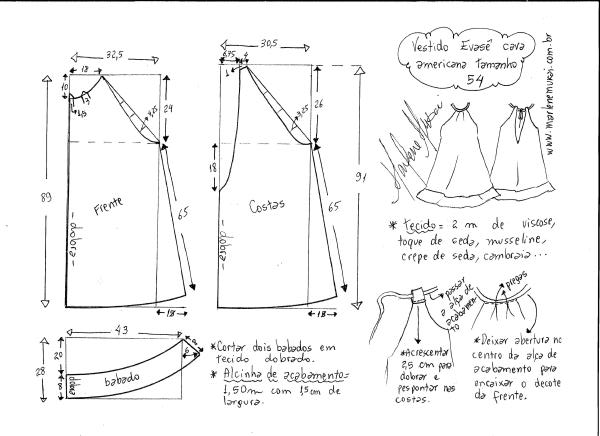 Vestido Evasê cava
americana tamanho
54
www.marlenemukai.com.br
Marlene Mukai
32,5
18
10
24
3,25
89
Frente
65
dobra
18
30,5
6,75
4
1
26
3,25
18
91
Costas
65
dobra
18
* tecido = 2 m de viscose,
toque de seda, musseline,
crepe de seda, cambraia...
43
28
20
8
dobra
babado
8
* Cortar dois babados em
tecido dobrado.
* Alcinha de acabamento =
1,50 m com 1,5 cm de
largura.
passar
a alça de
acabamen
to
* Acrescentar
2,5 cm para
dobrar e
pespontar nas
costas.
pregas
* Deixar abertura no
centro da alça de
acabamento para
encaixar o decote
da frente.